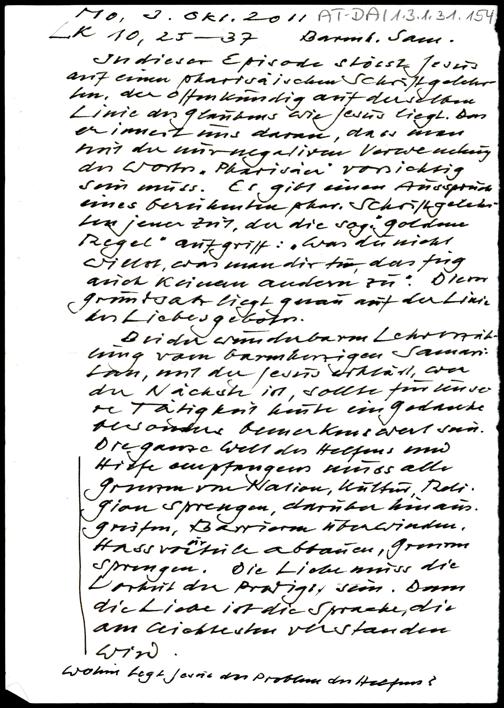 Mo, 3. Okt. 2011 AT-DA|1.3.1.31.154
LK 10, 25–37 Barmh. Sam.
In dieser Episode stösst Jesus
auf einen pharisäischen Schriftgelehr
ten, der offenkundig auf derselben
Linie des Glaubens wie Jesus liegt. Das
erinnert uns daran, dass man
mit der nur negativen Verwendung
des Wortes „Pharisäer" vorsichtig
sein muss. Es gibt einen Ausspruch
eines berühmten phar. Schriftgelehr
ten jener Zeit, der die sog. „goldene
Regel" aufgriff: „Was du nicht
willst, was man dir tu, das füg
auch keinen andern zu". Dieser
grundsatz liegt genau auf der Linie
des Liebesgebotes.
Bei der wunderbaren Lehrerzäh
lung vom barmherzigen Samari
tan, mit der Jesus erklärt, wer
der Nächste ist, sollte für unse
re Tätigkeit heute ein Gedanke
besonders bemerkenswert sein.
Die ganze Welt des Helfens und
Hilfe empfangens muss alle
Grenzen von Nation, Kultur, Reli
gion sprengen, darüber hinaus
greifen, Barrieren überwinden,
Hassvorurteile abbauen, Grenzen
sprengen. Die Liebe muss die
Vorhut der Predigt sein. Denn
die Liebe ist die Sprache, die
am leichtesten verstanden
wird.
Wohin legt Jesus das Problem des Helfens?